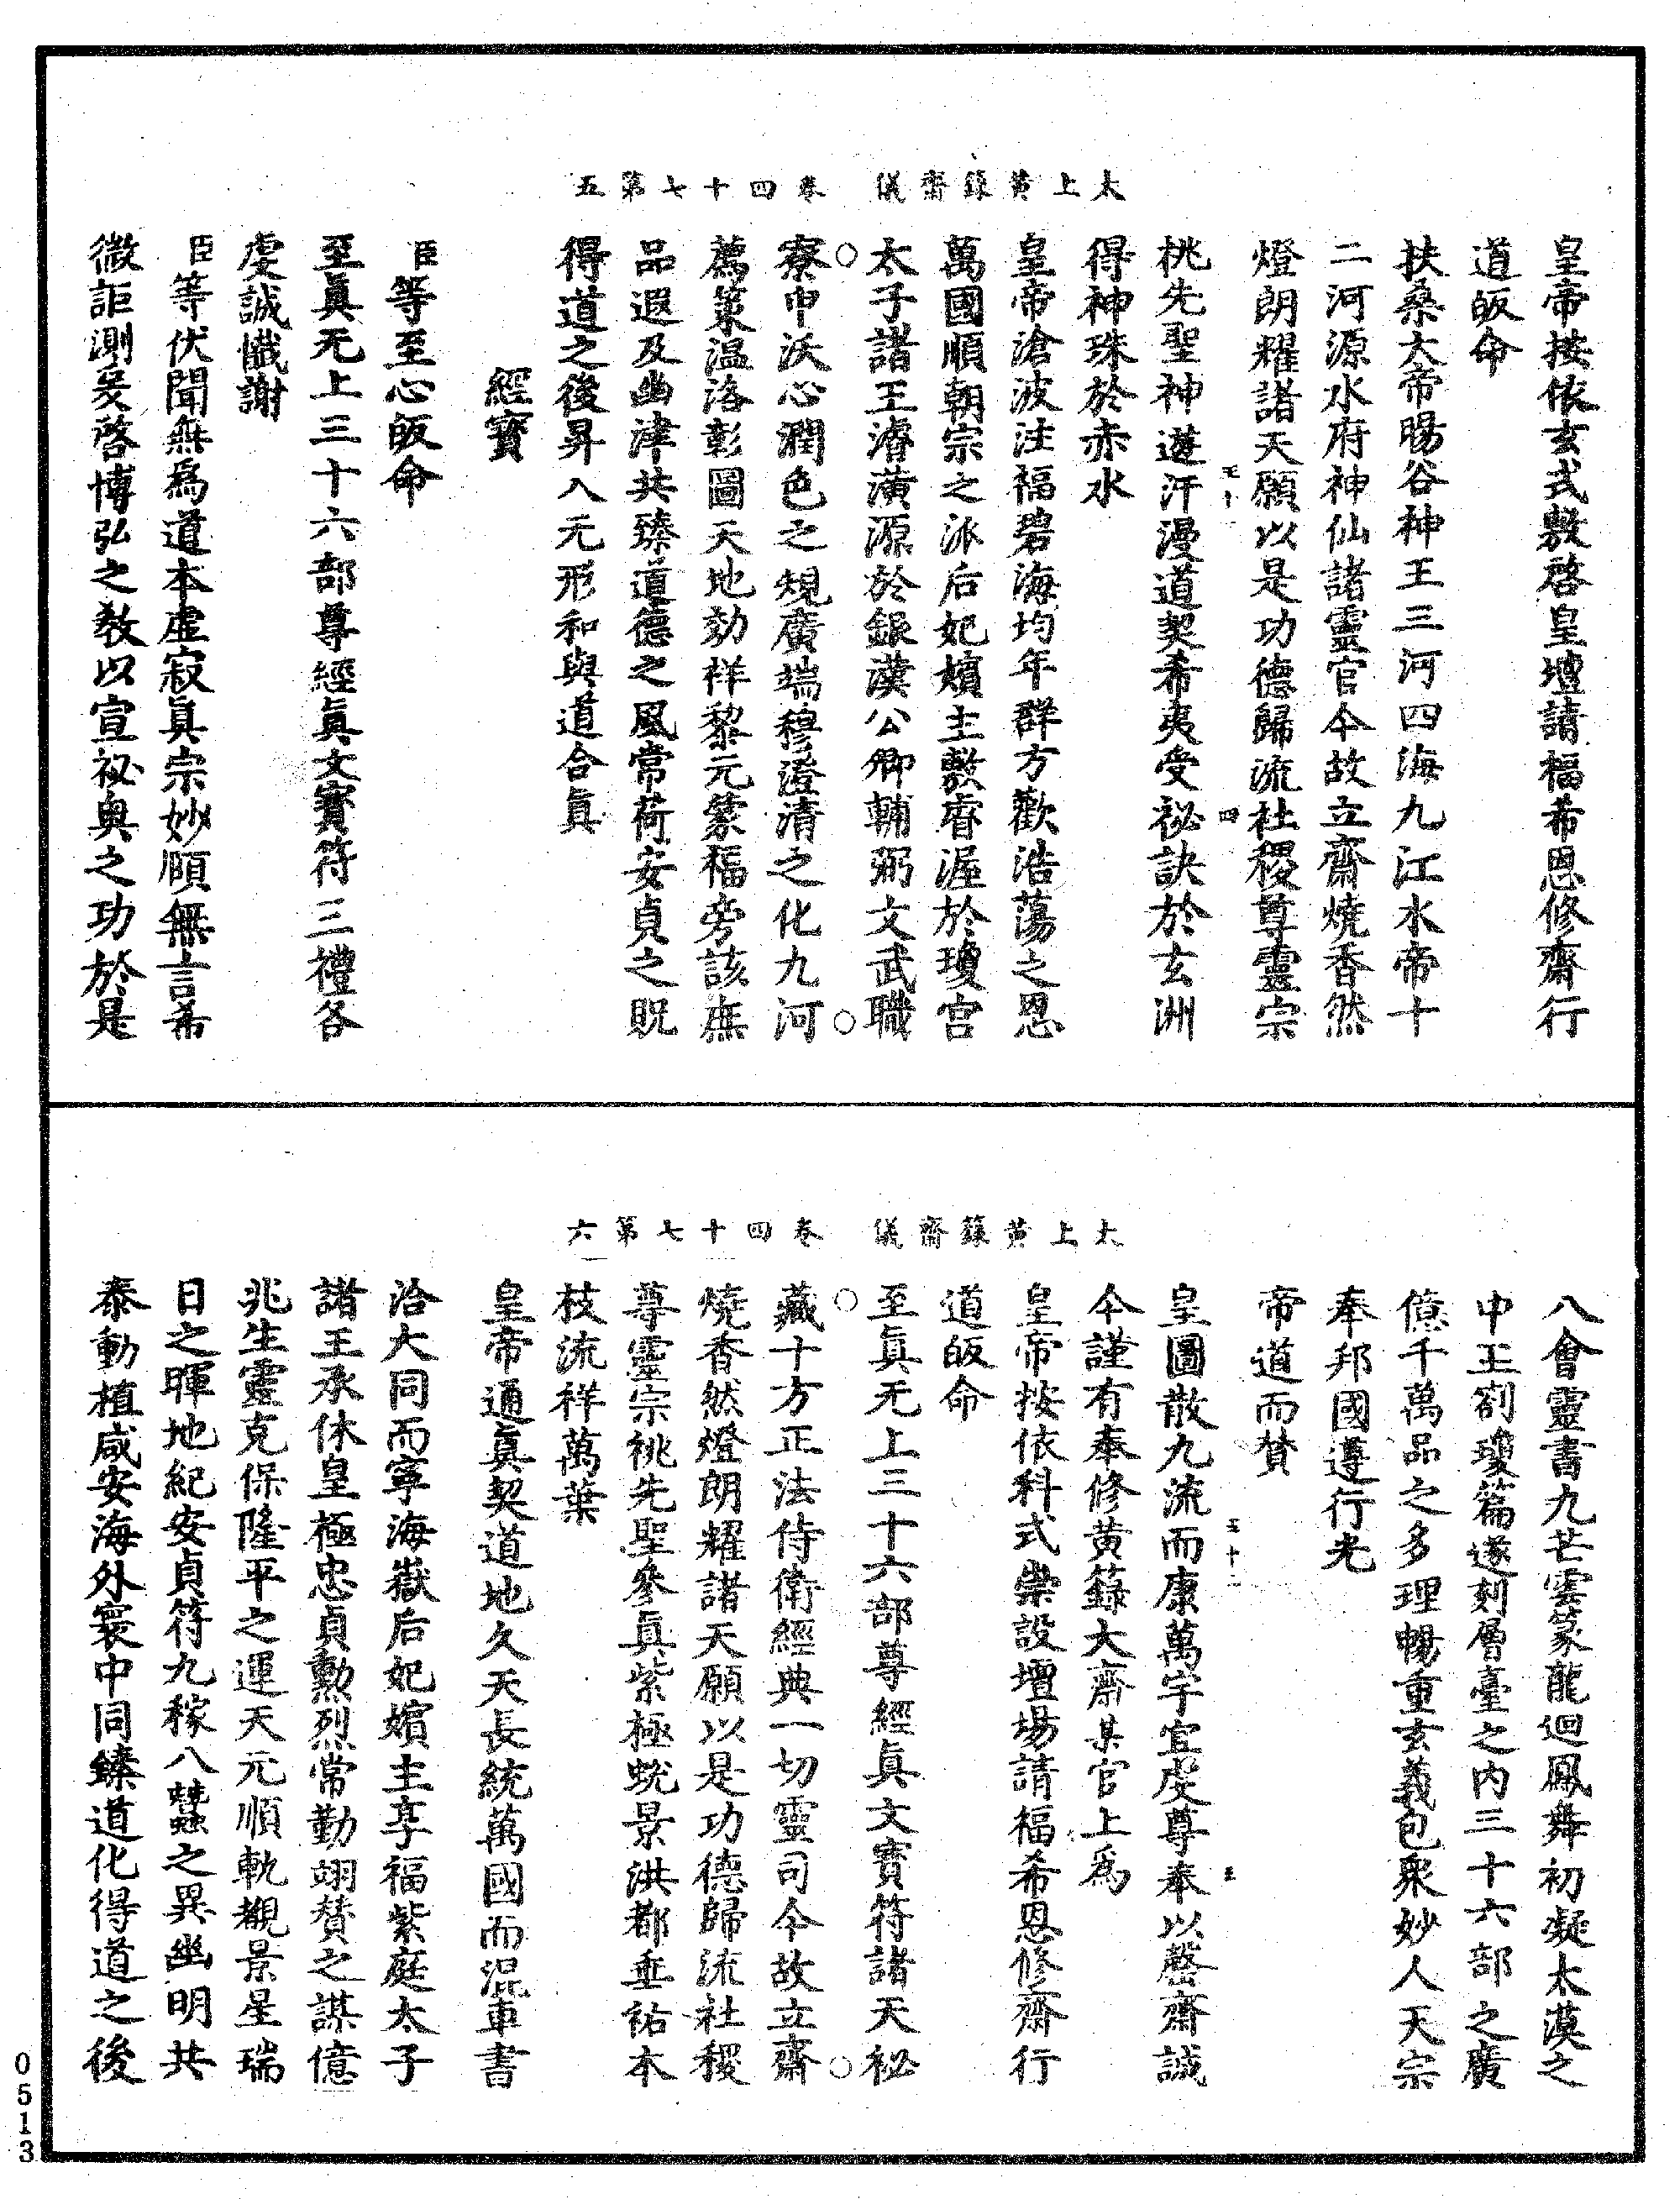 太上黃籙齋儀　卷四十七第五
皇帝按依玄式敷啓皇壇請福希恩修齋行
道皈命
扶桑大帝暘谷神王三河四海九江水帝十
二河源水府神仙諸靈官今故立齋燒香然
燈朗耀諸天願以是功德歸流社稷尊靈宗
祧先聖神遊汗漫道契希夷受祕訣於玄洲
得神珠於赤水
皇帝滄波注福碧海均年群方歡浩蕩之恩
萬國順朝宗之派后妃嬪主敷睿渥於瓊宮
太子諸王濬潢源於銀漢公卿輔弼文武職
寮申沃心潤色之規廣端穆澄清之化九河
薦策温洛彰圖天地効祥黎元蒙福旁該庶
品遐及幽津共臻道德之風常荷安貞之貺
得道之後昇入无形和與道合眞
經寳
臣等至心皈命
至眞无上三十六部尊經眞文寳符三禮各
虔誠懺謝
臣等伏聞無爲道本虛寂眞宗妙順無言希
微詎測爰啓博弘之敎以宣祕奥之功於是
太上黃籙齋儀　卷四十七第六
八會靈書九芒雲篆龍迴鳳舞初凝太漠之
中玉劄瓊篇遂刻層臺之内三十六部之廣
億千萬品之多理暢重玄義包衆妙人天宗
奉邦國遵行光
帝道而賛
皇圖散九流而康萬宇宜虔尊奉以罄齋誠
今謹有奉修黃籙大齋某官上爲
皇帝按依科式崇設壇場請福希恩修齋行
道皈命
至眞无上三十六部尊經眞文寳符諸天祕
藏十方正法侍衛經典一切靈司今故立齋
燒香然燈朗耀諸天願以是功德歸流社稷
尊靈宗祧先聖參眞紫極蛻景洪都垂祐本
枝流祥萬葉
皇帝通眞契道地久天長統萬國而混車書
洽大同而寧海嶽后妃嬪主享福紫庭太子
諸王承休皇極忠貞勲烈常勤翊賛之謀億
兆生靈克保隆平之運天元順軌覩景星瑞
日之暉地紀安貞符九稼八蠶之異幽明共
泰動植咸安海外寰中同臻道化得道之後
0513